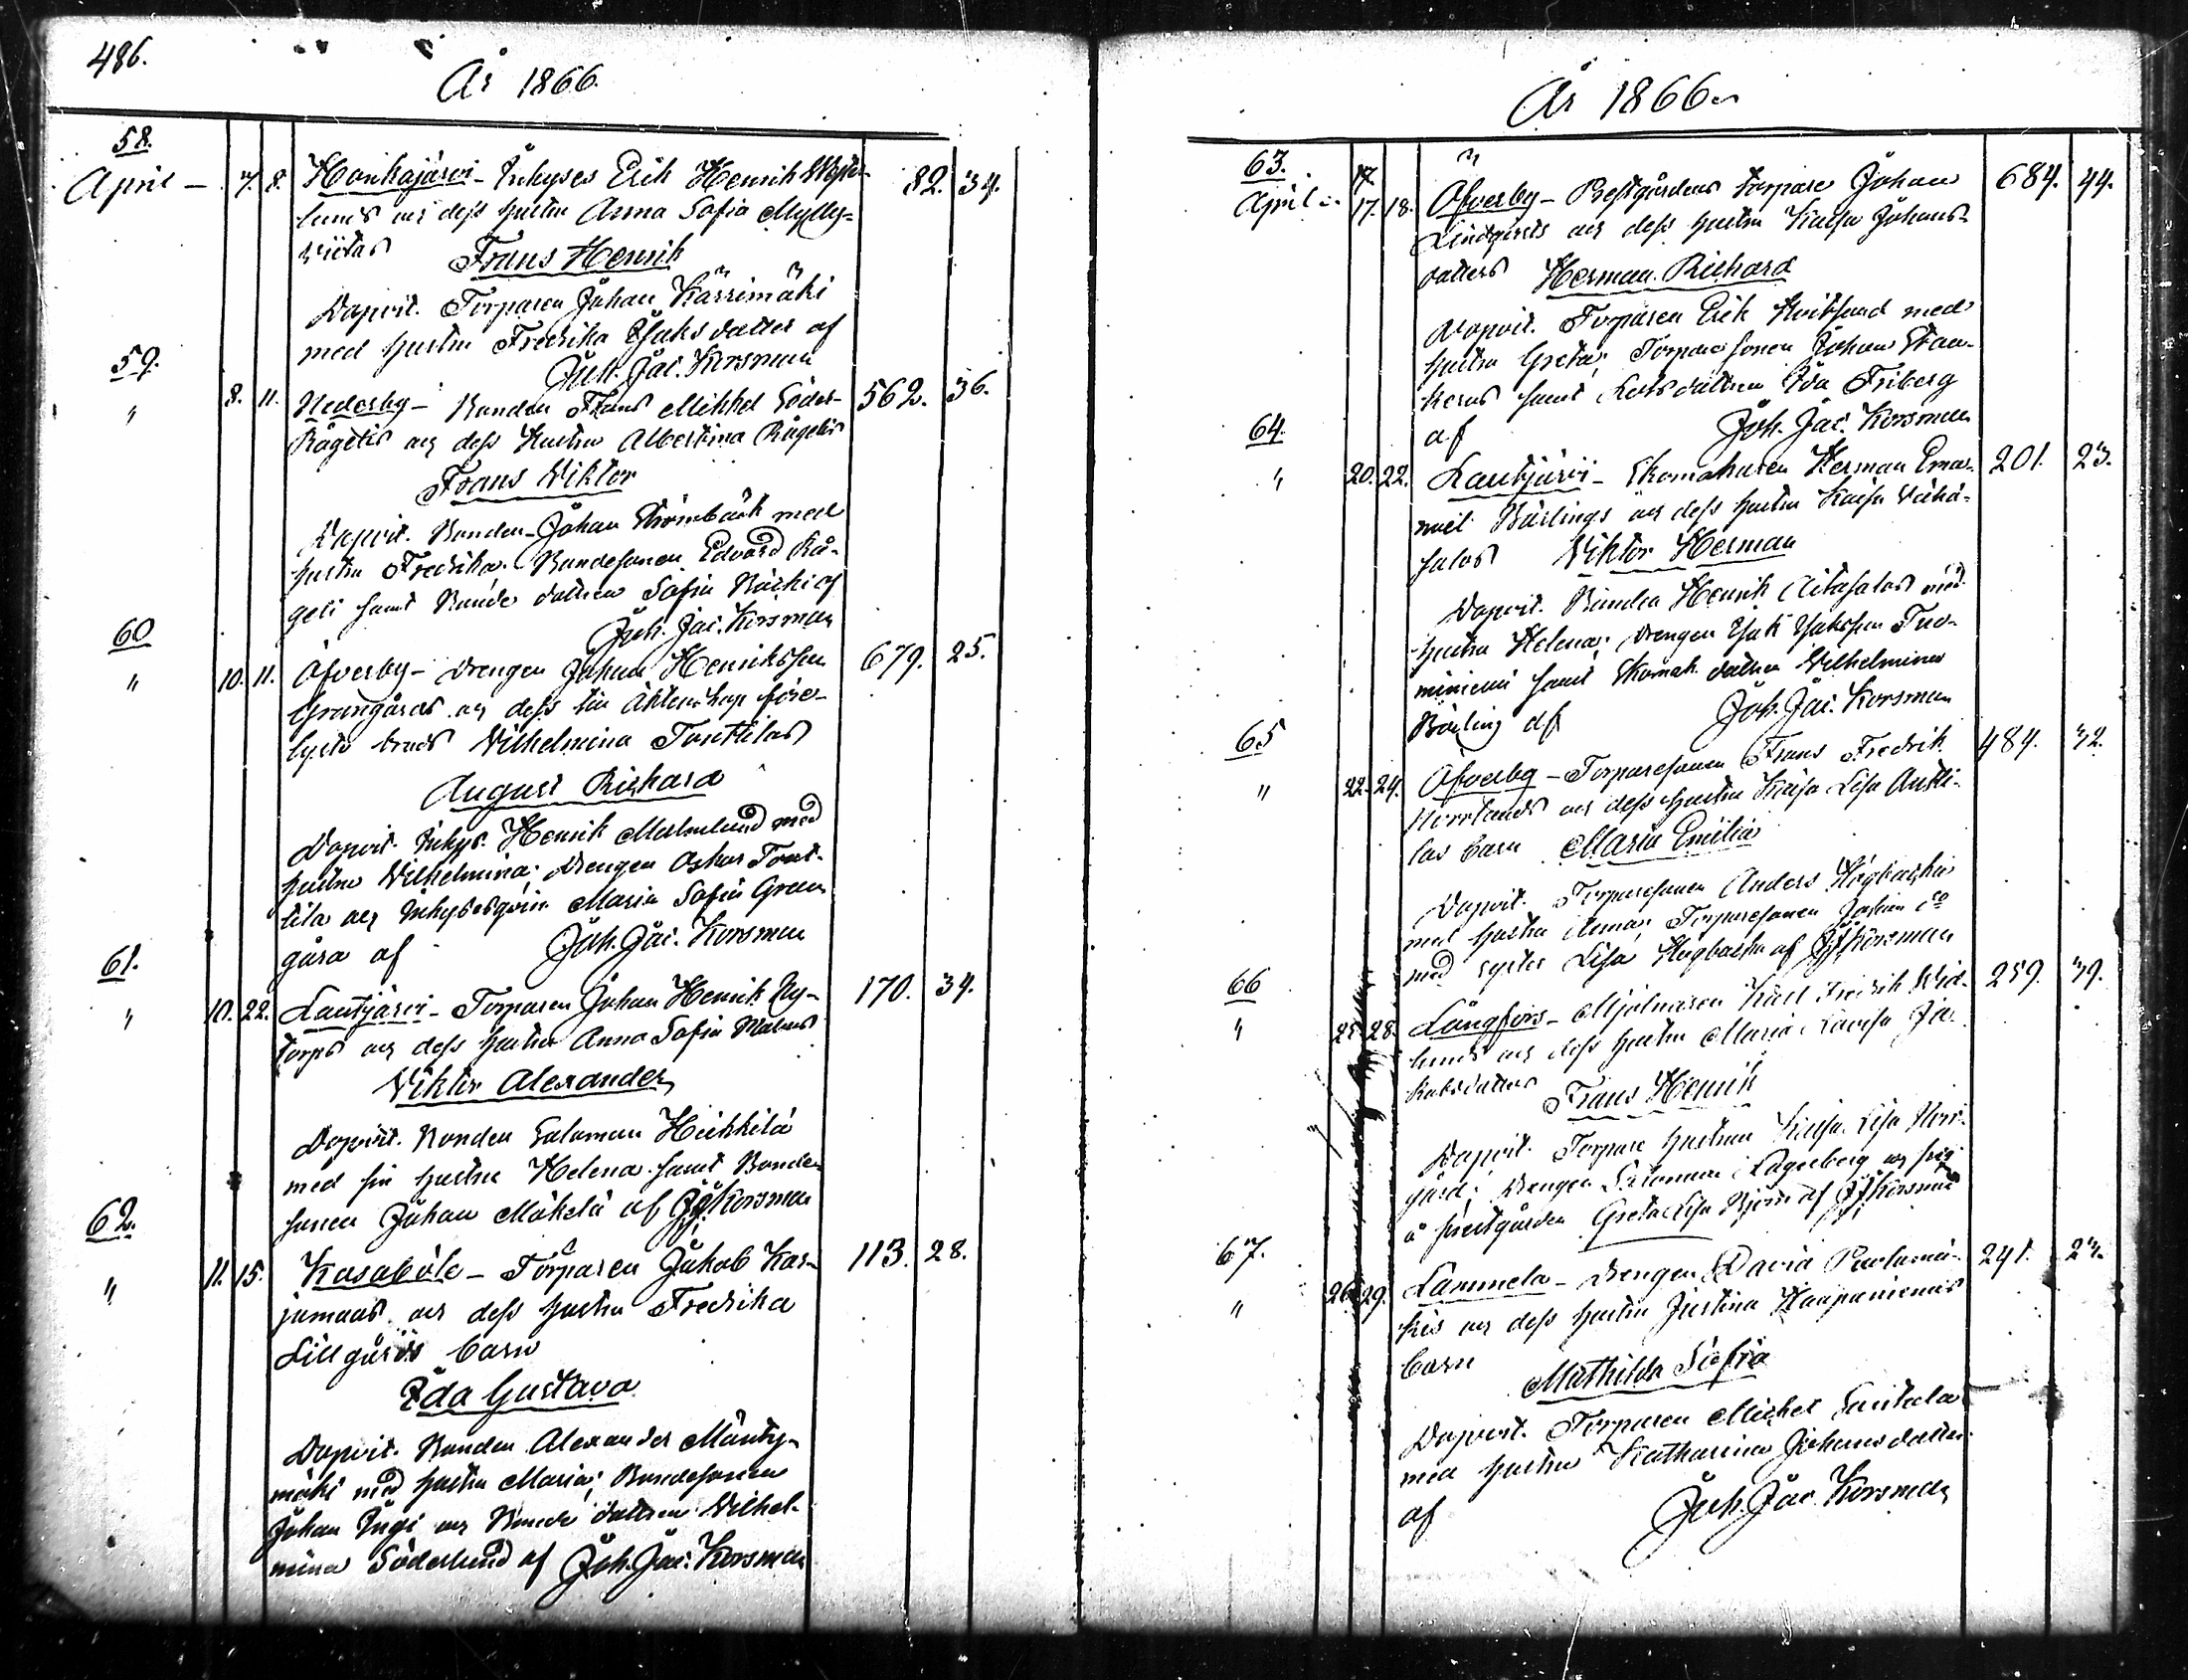 486.
År 1866.
58.
April – 7. 8. Honkajärvi – Inhyses Erik Henrik Wester-
lunds och dess hustru Anna Sofia Mylly-
viitas Frans Henrik
Dopvit. Torparen Johan Kärrimäki
med hustru Fredrika Isaksdotter af
Joh. Jac. Korsman
82. 34.
59.
" 8. 11. Nederby – Bonden Frans Mikkel Söder-
Rågels och dess Hustru Albertina Rågels
Frans Viktor
Dopvit. Bonden Johan Strömbäck med
hustru Fredrika. Bondesonen Edvard Rå-
geli samt Bonde dottren Sofia Backi af
Joh. Jac. Korsman
562. 36.
60
" 10. 11. Öfverby – Drengen Johan Henriksson
Grangårds och dess till Äktenskap före-
lysta brud Vilhelmina Tonttilas
August Richard
Dopvit. Inhys. Henrik Malmlund med
hustru Vilhelmina; Drengen Oskar Tont-
tila och Inhysesqvin Maria Sofia Gran
gård af Joh. Jac. Korsman
679. 25.
61.
" 10. 22. Lautjärvi – Torparen Johan Henrik Ny-
torps och dess hustru Anna Sofia Malms
Viktor Alexander
Dopvit. Bonden Salomon Heikkilä
med sin hustru Helena samt Bonde
sonen Johan Mäkelä af JJKorsman
170. 34.
62.
" 11. 15. Kasaböle – Torparen Jakob Kar-
jamaas och dess hustru Fredrika
Lillgårds barn
Ida Gustava
Dopvit. Bonden Alexander Mänty-
mäki med hustru Maria; Bondesonen
Johan Ingi och Bonde dottren Vilhel-
mina Söderlund af Joh. Jac. Korsman
113. 28.
År 1866
63.
April 17. 18. Öfverby – Prestgårdens torpare Johan
Lindqvists och dess hustru Kajsa Johans-
dotters Herman Richard
Dopvit. Torparen Erik Kvitsund med
hustru Greta; Torpare sonen Johan
samt dottren Ida Friberg
af Joh. Jac. Korsman
684. 44.
64.
" 20. 22. Lautjärvi – Skomakaren Herman Ema-
nuel Bärlings och dess hustru Kajsa Vähä-
salos Viktor Herman
Dopvit. Bonden Henrik med
hustru Helena; Drengen Isak Isaksson Tuo-
miniemi samt Skomak. dottren Vilhelmina
Bärling af Joh. Jac. Korsman
201. 23.
65
" 22. 24. Öfverby – Torparesonen Frans Fredrik
Norrlunds och dess hustru Kajsa Lisa Antti-
las barn Maria Emilia
Dopvit. Torparesonen Anders Högbacka
med hustru Anna; Torparesonen
med syster Lisa Högbacka af JJKorsman
484. 32.
66
" 25. 28. Långfors – Mjölnaren Karl Fredrik Wid-
lunds och dess hustru Maria Lovisa Ja-
kobsdotters Frans Henrik
Dopvit. Torpare hustrun Kajsa Lisa Norr-
gård; Drengen Salomon Lagerberg och
å prestgården Greta Lisa Björn af JJKorsman
259. 39.
67.
" 26. 29. Lammela – Drengen David
och dess hustru Justina Haapaniemis
barn Mathilda Sofia
Dopvit. Torparen Mickel Santala
med hustru Katharina Johansdotter
af Joh. Jac. Korsman
241. 23.